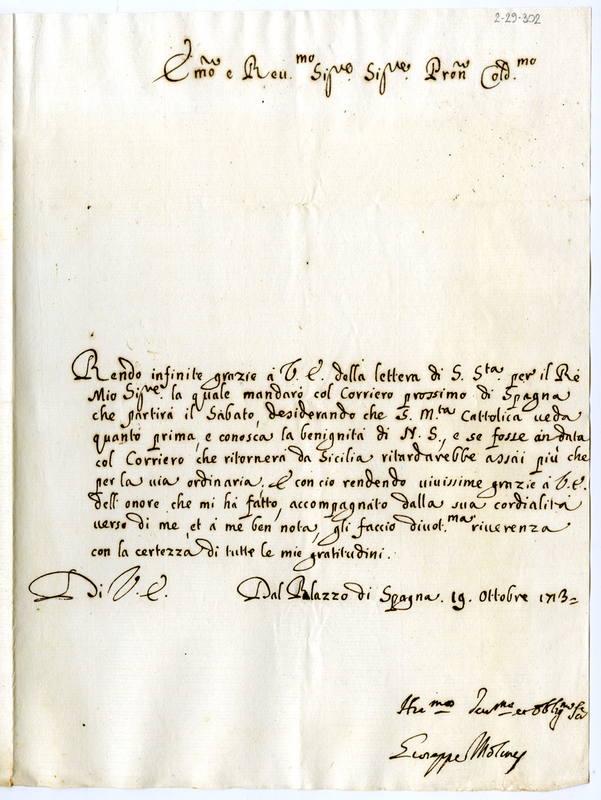 2-29-302
Emo e Reu.mo Sigre. Sigre. Pron Cold.mo
Rendo infinite grazie à V. E. della lettera di S. Sta. per il Rè
Mio Sigre. la quale mandarò col Corriero prossimo di Spagna
che partirà il Sabato, desiderando che S. Mta. Cattolica ueda
quanto prima, e conosca la benignità di N. S., e se fosse andata
col Corriero, che ritornerà da Sicilia ritardarebbe assai più che
per la uia ordinaria. E con cio rendendo viuissime grazie à V. E.
dell' onore che mi hà fatto, accompagnato dalla sua cordialità
uerso di me, et à me ben nota, gli faccio diuot.ma riuerenza
con la certezza di tutte le mie gratitudini.
Di V. E. Dal Palazzo di Spagna. 19. Ottobre 1713=
Giuseppe Molines